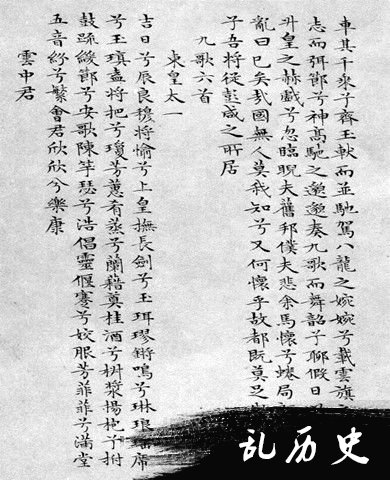 車其千乘兮齊玉軑而並馳駕八龍之婉婉兮載雲旗
志而弭節兮神高馳之邈邈奏九歌而舞韶兮聊假日
升皇之赫戲兮忽臨睨夫舊鄉僕夫悲余馬懷兮蜷局
亂曰已矣哉國無人莫我知兮又何懷乎故都既莫足
子吾將從彭咸之所居
九歌六首
東皇太一
吉日兮辰良穆將愉兮上皇撫長劍兮玉珥璆鏘鳴兮琳琅席
兮玉瑱盍將把兮瓊芳蕙肴蒸兮蘭藉奠桂酒兮椒漿揚枹兮拊
鼓疏緩節兮安歌陳竽瑟兮浩倡靈偃蹇兮姣服芳菲菲兮滿堂
五音紛兮繁會君欣欣兮樂康
雲中君
乱历史